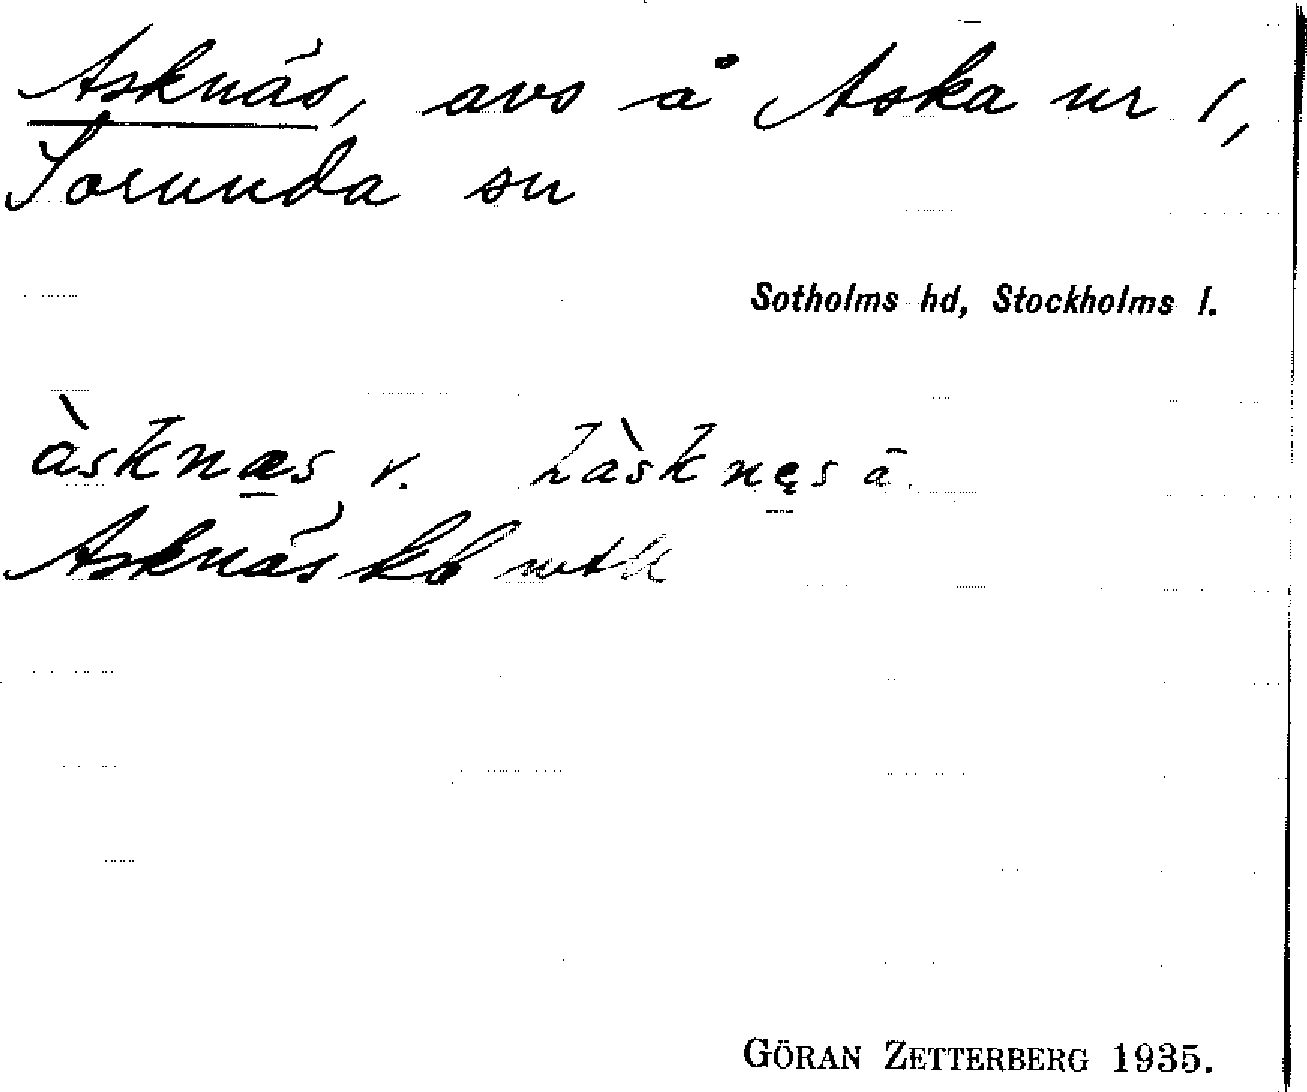 Asknäs, avs å Aska nr 1,
Sorunda sn
Sotholms hd, Stockholms l.
àsknæs v. hàsknęs ä.
Asknäs kb mtl
GÖRAN ZETTERBERG 1935.